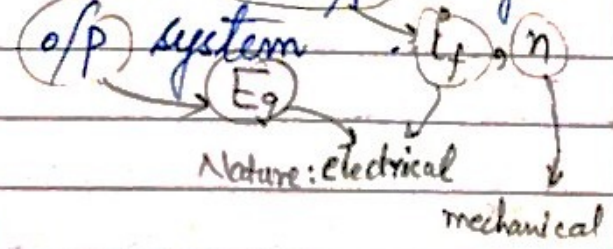 o/p system . if , n
Eg
Nature: electrical
mechanical